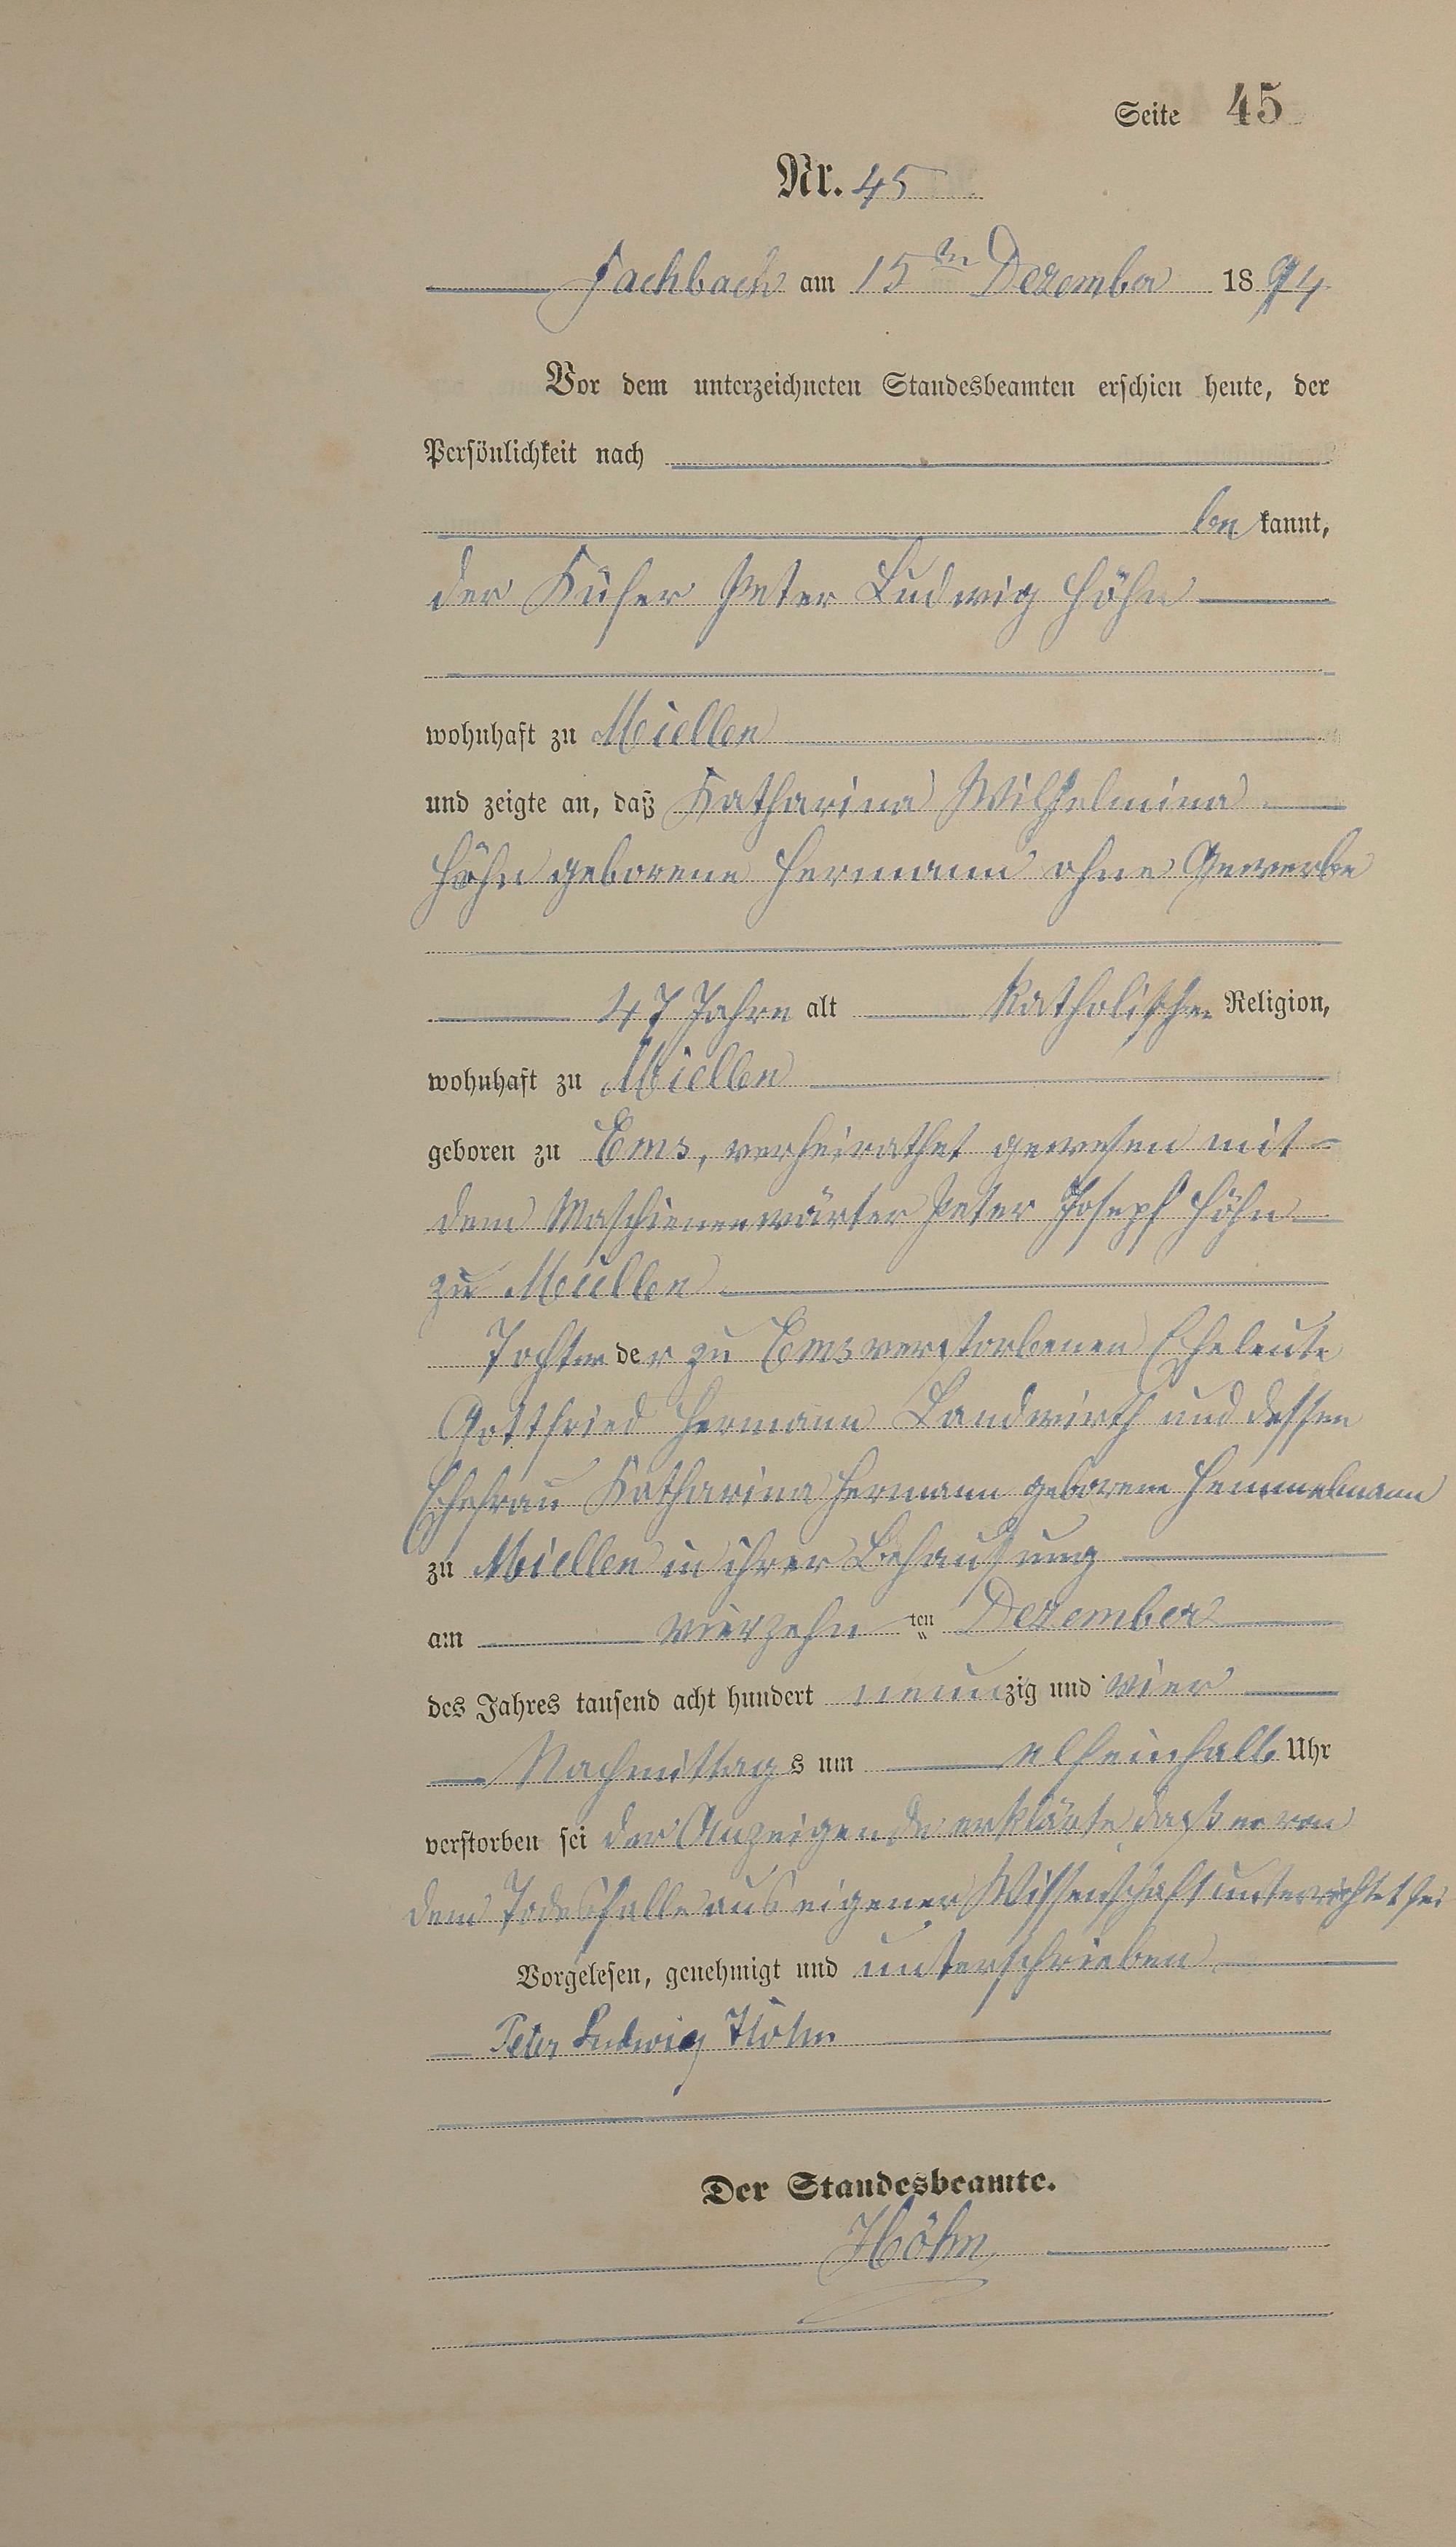 Seite 45
Nr. 45
Fachbach am 15ten Dezember 1894
Vor dem unterzeichneten Standesbeamten erschien heute, der
Persönlichkeit nach
be kannt,
der Küfer Peter Ludwig Höhn
wohnhaft zu Miellen
und zeigte an, daß Katharina Wilhelmina
Höhn geborene Hermann ohne Gewerbe
47 Jahre alt katholischer Religion,
wohnhaft zu Miellen
geboren zu Ems, verheirathet gewesen mit
dem Maschienenwärter Peter Joseph Höhn
zu Miellen
Tochter der zu Ems verstorbenen Eheleute
Gottfried Hermann Landwirth und dessen
Ehefrau Katharina Hermann geborene Hemmelmann
zu Miellen in ihrer Behaußung
am vierzehn ten Dezember
des Jahres tausend acht hundert neunzig und vier
Nachmittags um elfeinhalb Uhr
verstorben sei der Anzeigende erklärte daß er von
dem Todesfalle aus eigener Wissenschaft unterrichtet sei
Vorgelesen, genehmigt und unterschrieben
Peter Ludwig Höhn
Der Standesbeamte.
Höhn